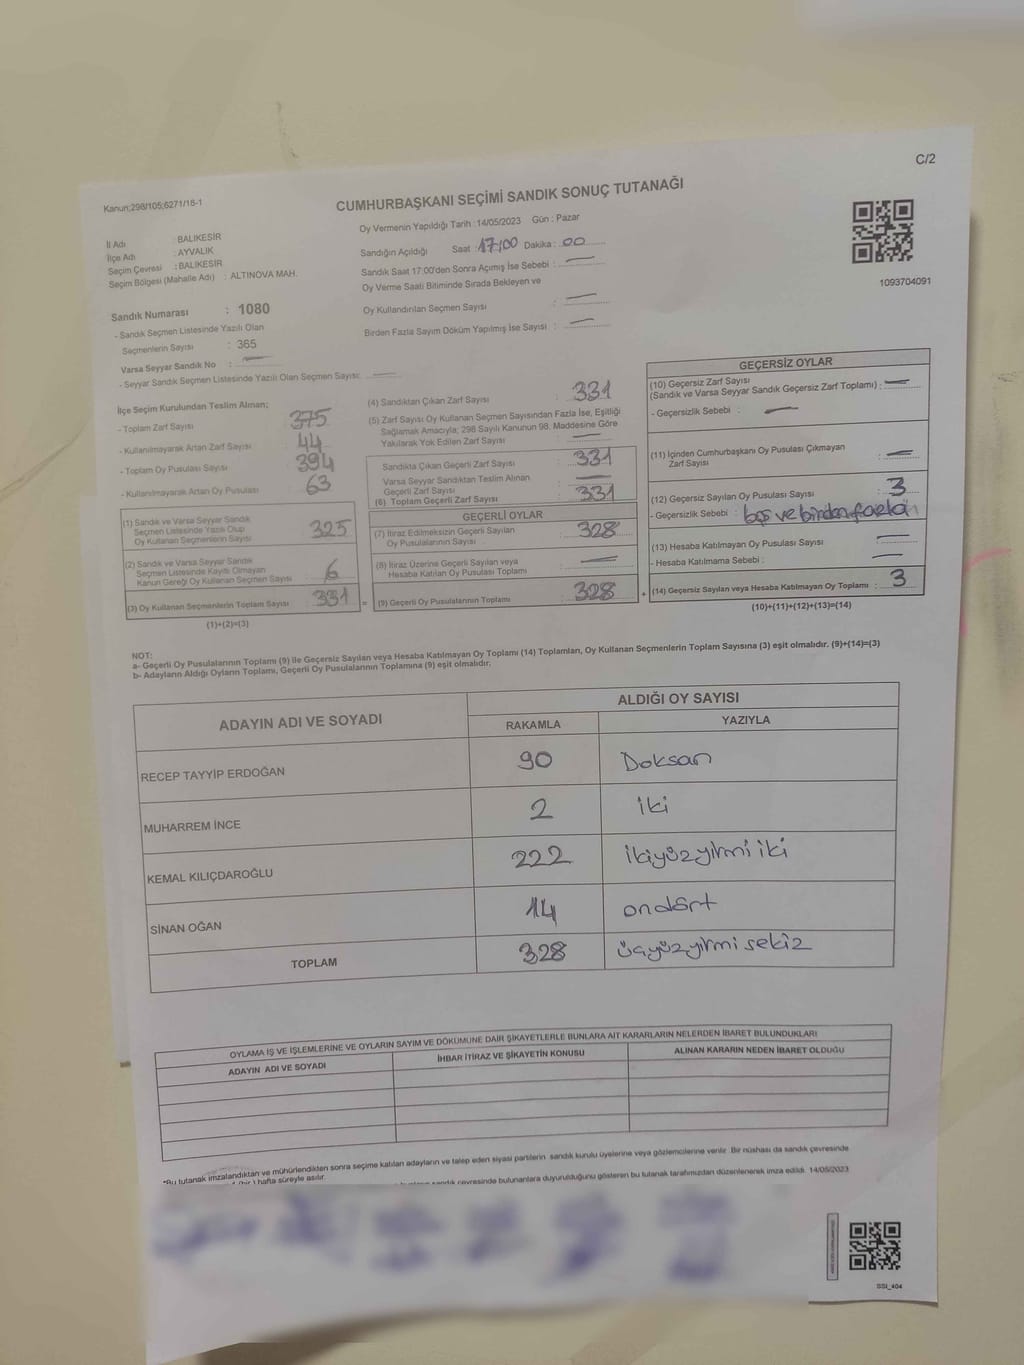 C/2
Kanun;298/105;6271/18-1
CUMHURBAŞKANI SEÇİMİ SANDIK SONUÇ TUTANAĞI
İl Adı : BALIKESİR
İlçe Adı : AYVALIK
Seçim Çevresi : BALIKESİR
Seçim Bölgesi (Mahalle Adı) : ALTINOVA MAH.
Oy Vermenin Yapıldığı Tarih : 14/05/2023 Gün : Pazar
Sandığın Açıldığı Saat : 17:00 Dakika : 00
Sandık Saat 17:00'den Sonra Açımış İse Sebebi :
Oy Verme Saati Bitiminde Sırada Bekleyen ve
Oy Kullandırılan Seçmen Sayısı :
Birden Fazla Sayım Döküm Yapılmış İse Sayısı :
1093704091
Sandık Numarası : 1080
- Sandık Seçmen Listesinde Yazılı Olan
Seçmenlerin Sayısı : 365
Varsa Seyyar Sandık No :
- Seyyar Sandık Seçmen Listesinde Yazılı Olan Seçmen Sayısı:
İlçe Seçim Kurulundan Teslim Alınan;
- Toplam Zarf Sayısı 375
- Kullanılmayarak Artan Zarf Sayısı 44
- Toplam Oy Pusulası Sayısı 394
- Kullanılmayarak Artan Oy Pusulası 63
(1) Sandık ve Varsa Seyyar Sandık
Seçmen Listesinde Yazılı Olup
Oy Kullanan Seçmenlerin Sayısı : 325
(2) Sandık ve Varsa Seyyar Sandık
Seçmen Listesinde Kayıtlı Olmayan
Kanun Gereği Oy Kullanan Seçmen Sayısı : 6
(3) Oy Kullanan Seçmenlerin Toplam Sayısı : 331
(1)+(2)=(3)
(4) Sandıktan Çıkan Zarf Sayısı : 331
(5) Zarf Sayısı Oy Kullanan Seçmen Sayısından Fazla İse, Eşitliği
Sağlamak Amacıyla; 298 Sayılı Kanunun 98. Maddesine Göre
Yakılarak Yok Edilen Zarf Sayısı :
Sandıkta Çıkan Geçerli Zarf Sayısı : 331
Varsa Seyyar Sandıktan Teslim Alınan
Geçerli Zarf Sayısı :
(6) Toplam Geçerli Zarf Sayısı : 331
GEÇERLİ OYLAR
(7) İtiraz Edilmeksizin Geçerli Sayılan
Oy Pusulalarının Sayısı : 328
(8) İtiraz Üzerine Geçerli Sayılan veya
Hesaba Katılan Oy Pusulası Toplamı :
= (9) Geçerli Oy Pusulalarının Toplamı : 328
GEÇERSİZ OYLAR
(10) Geçersiz Zarf Sayısı
(Sandık ve Varsa Seyyar Sandık Geçersiz Zarf Toplamı) :
- Geçersizlik Sebebi :
(11) İçinden Cumhurbaşkanı Oy Pusulası Çıkmayan
Zarf Sayısı :
(12) Geçersiz Sayılan Oy Pusulası Sayısı : 3
- Geçersizlik Sebebi : boş ve birden fazla
(13) Hesaba Katılmayan Oy Pusulası Sayısı :
- Hesaba Katılmama Sebebi :
+ (14) Geçersiz Sayılan veya Hesaba Katılmayan Oy Toplamı : 3
(10)+(11)+(12)+(13)=(14)
NOT:
a- Geçerli Oy Pusulalarının Toplamı (9) ile Geçersiz Sayılan veya Hesaba Katılmayan Oy Toplamı (14) Toplamları, Oy Kullanan Seçmenlerin Toplam Sayısına (3) eşit olmalıdır. (9)+(14)=(3)
b- Adayların Aldığı Oyların Toplamı, Geçerli Oy Pusulalarının Toplamına (9) eşit olmalıdır.
ADAYIN ADI VE SOYADI
ALDIĞI OY SAYISI
RAKAMLA YAZIYLA
RECEP TAYYİP ERDOĞAN 90 Doksan
MUHARREM İNCE 2 iki
KEMAL KILIÇDAROĞLU 222 ikiyüzyirmi iki
SİNAN OĞAN 14 ondört
TOPLAM 328 üçyüzyirmi sekiz
OYLAMA İŞ VE İŞLEMLERİNE VE OYLARIN SAYIM VE DÖKÜMÜNE DAİR ŞİKAYETLERLE BUNLARA AİT KARARLARIN NELERDEN İBARET BULUNDUKLARI
ADAYIN ADI VE SOYADI İHBAR İTİRAZ VE ŞİKAYETİN KONUSU ALINAN KARARIN NEDEN İBARET OLDUĞU
*Bu tutanak imzalandıktan ve mühürlendikten sonra seçime katılan adayların ve talep eden siyasi partilerin sandık kurulu üyelerine veya gözlemcilerine verilir. Bir nüshası da sandık çevresinde
(bir) hafta süreyle asılır.
sandık çevresinde bulunanlara duyurulduğunu gösteren bu tutanak tarafımızdan düzenlenerek imza edildi. 14/05/2023
SSI_404